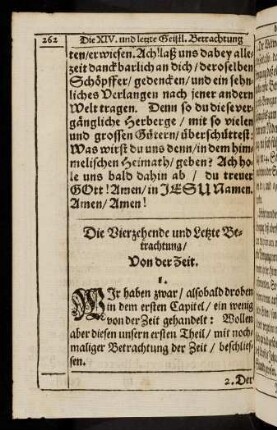 262
Die XIV. und letzte Geistl. Betrachtung
ten/ erwiesen. Ach! laß uns dabey alle-
zeit danckbarlich an dich/ deroselben
Schöpffer/ gedencken/ und ein sehn-
liches Verlangen nach jener andern
Welt tragen. Denn so du diese ver-
gängliche Herberge/ mit so vielen
und grossen Gütern/ überschüttest:
Was wirst du uns denn/ in dem him-
melischen Heimath/ geben? Ach ho-
le uns bald dahin ab/ du treuer
GOtt! Amen/ in JESU Namen.
Amen/ Amen!
Die Vierzehende und Letzte Be-
trachtung/
Von der Zeit.
1.
WIr haben zwar/ alsobald droben
in dem ersten Capitel/ ein wenig
von der Zeit gehandelt: Wollen
aber diesen unsern ersten Theil/ mit noch-
maliger Betrachtung der Zeit/ beschlies-
sen.
2. Der